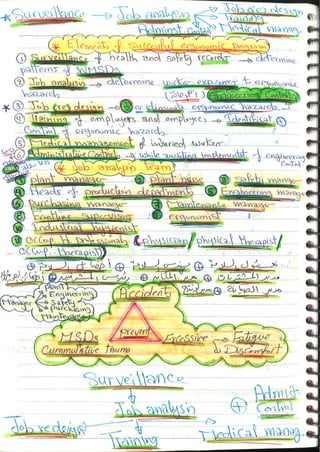 * Surveillance → Job analysis → Job (re) design
→ Training
Administ. control Medical manag.
* Elements of Successful ergonomic program
① Surveillance of health and safety records → determine
patterns of WMSDs
② Job analysis → determine worker exposure to ergonomic
hazards
* ③ Job (re) design → ↓ or eliminate ergonomic hazards
④ Training of employers and employees → Identificat. &
Control of ergonomic hazards
⑤ Medical management of injuried worker.
⑥ Administrative Control → while awaiting implementat° of engineering
Control
* Job analysis Team
① Plant manager ② Plant nurse ③ Safety manager
④ Heads of production departments ⑤ Engineering manager
⑥ Purchasing manager ⑦ Maintenance manager
⑧ Frontline Supervisor ⑨ ergonomist
⑩ Industrial hygienist
⑪ Occup. H. professionals (physician/ physical therapist/
occup. therapist)
Manager
Plant
Engineering
Safety
Purchasing
Maintenance
Accident
prevent
MSDs
Cummulative trauma
Excessive → Fatigue
& Discomfort
Surveillance
Job analysis
Administ.
Control
Job redesign
Training
Medical manag.